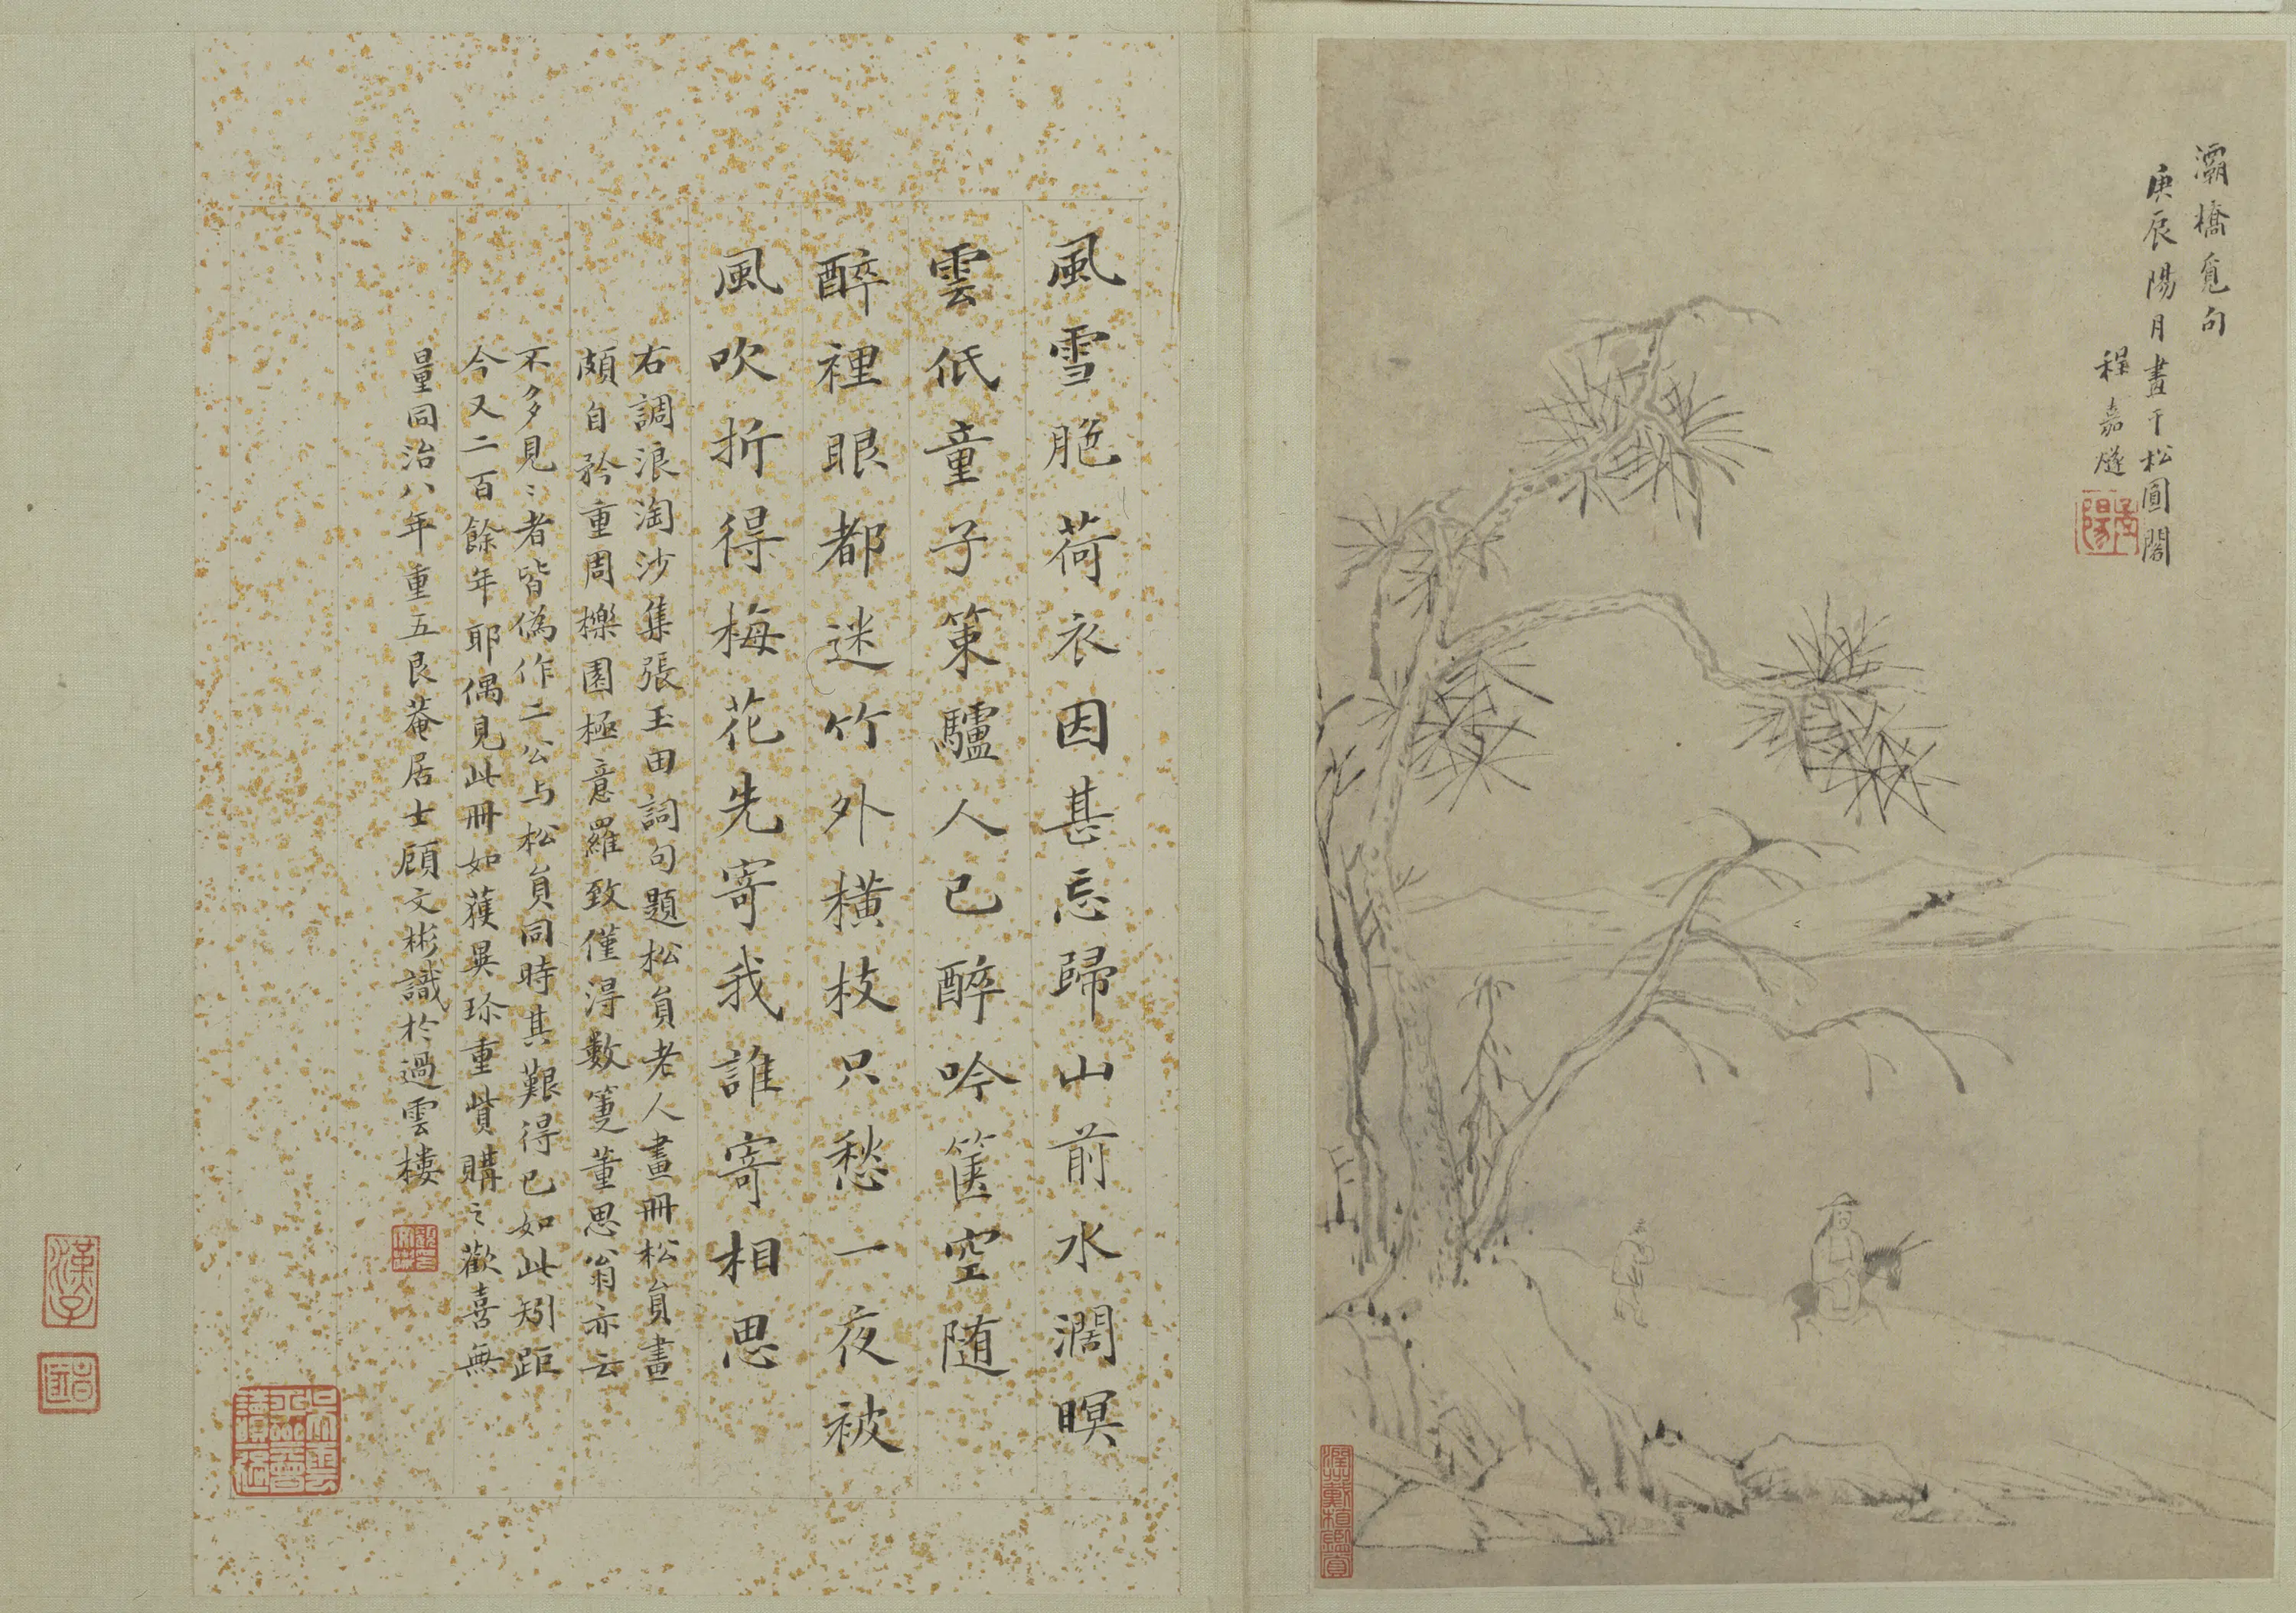 灞橋覓句
庚辰陽月畫于松圓閣
程嘉燧
孟陽
風雪脆荷衣因甚忘歸山前水濶暝
雲低童子策驢人已醉吟篋空随
醉裡眼都迷竹外橫枝只愁一夜被
風吹折得梅花先寄我誰寄相思
右調浪淘沙集張玉田詞句題松負老人畫冊松負畫
頗自矜重周櫟園極意羅致僅淂數箑董思翁亦云
不多見〻者皆偽作二公与松負同時其艱得已如此矧距
今又二百餘年耶偶見此冊如獲異珎重貲購之歡喜無
量同治八年重五艮菴居士顧文彬識於過雲樓